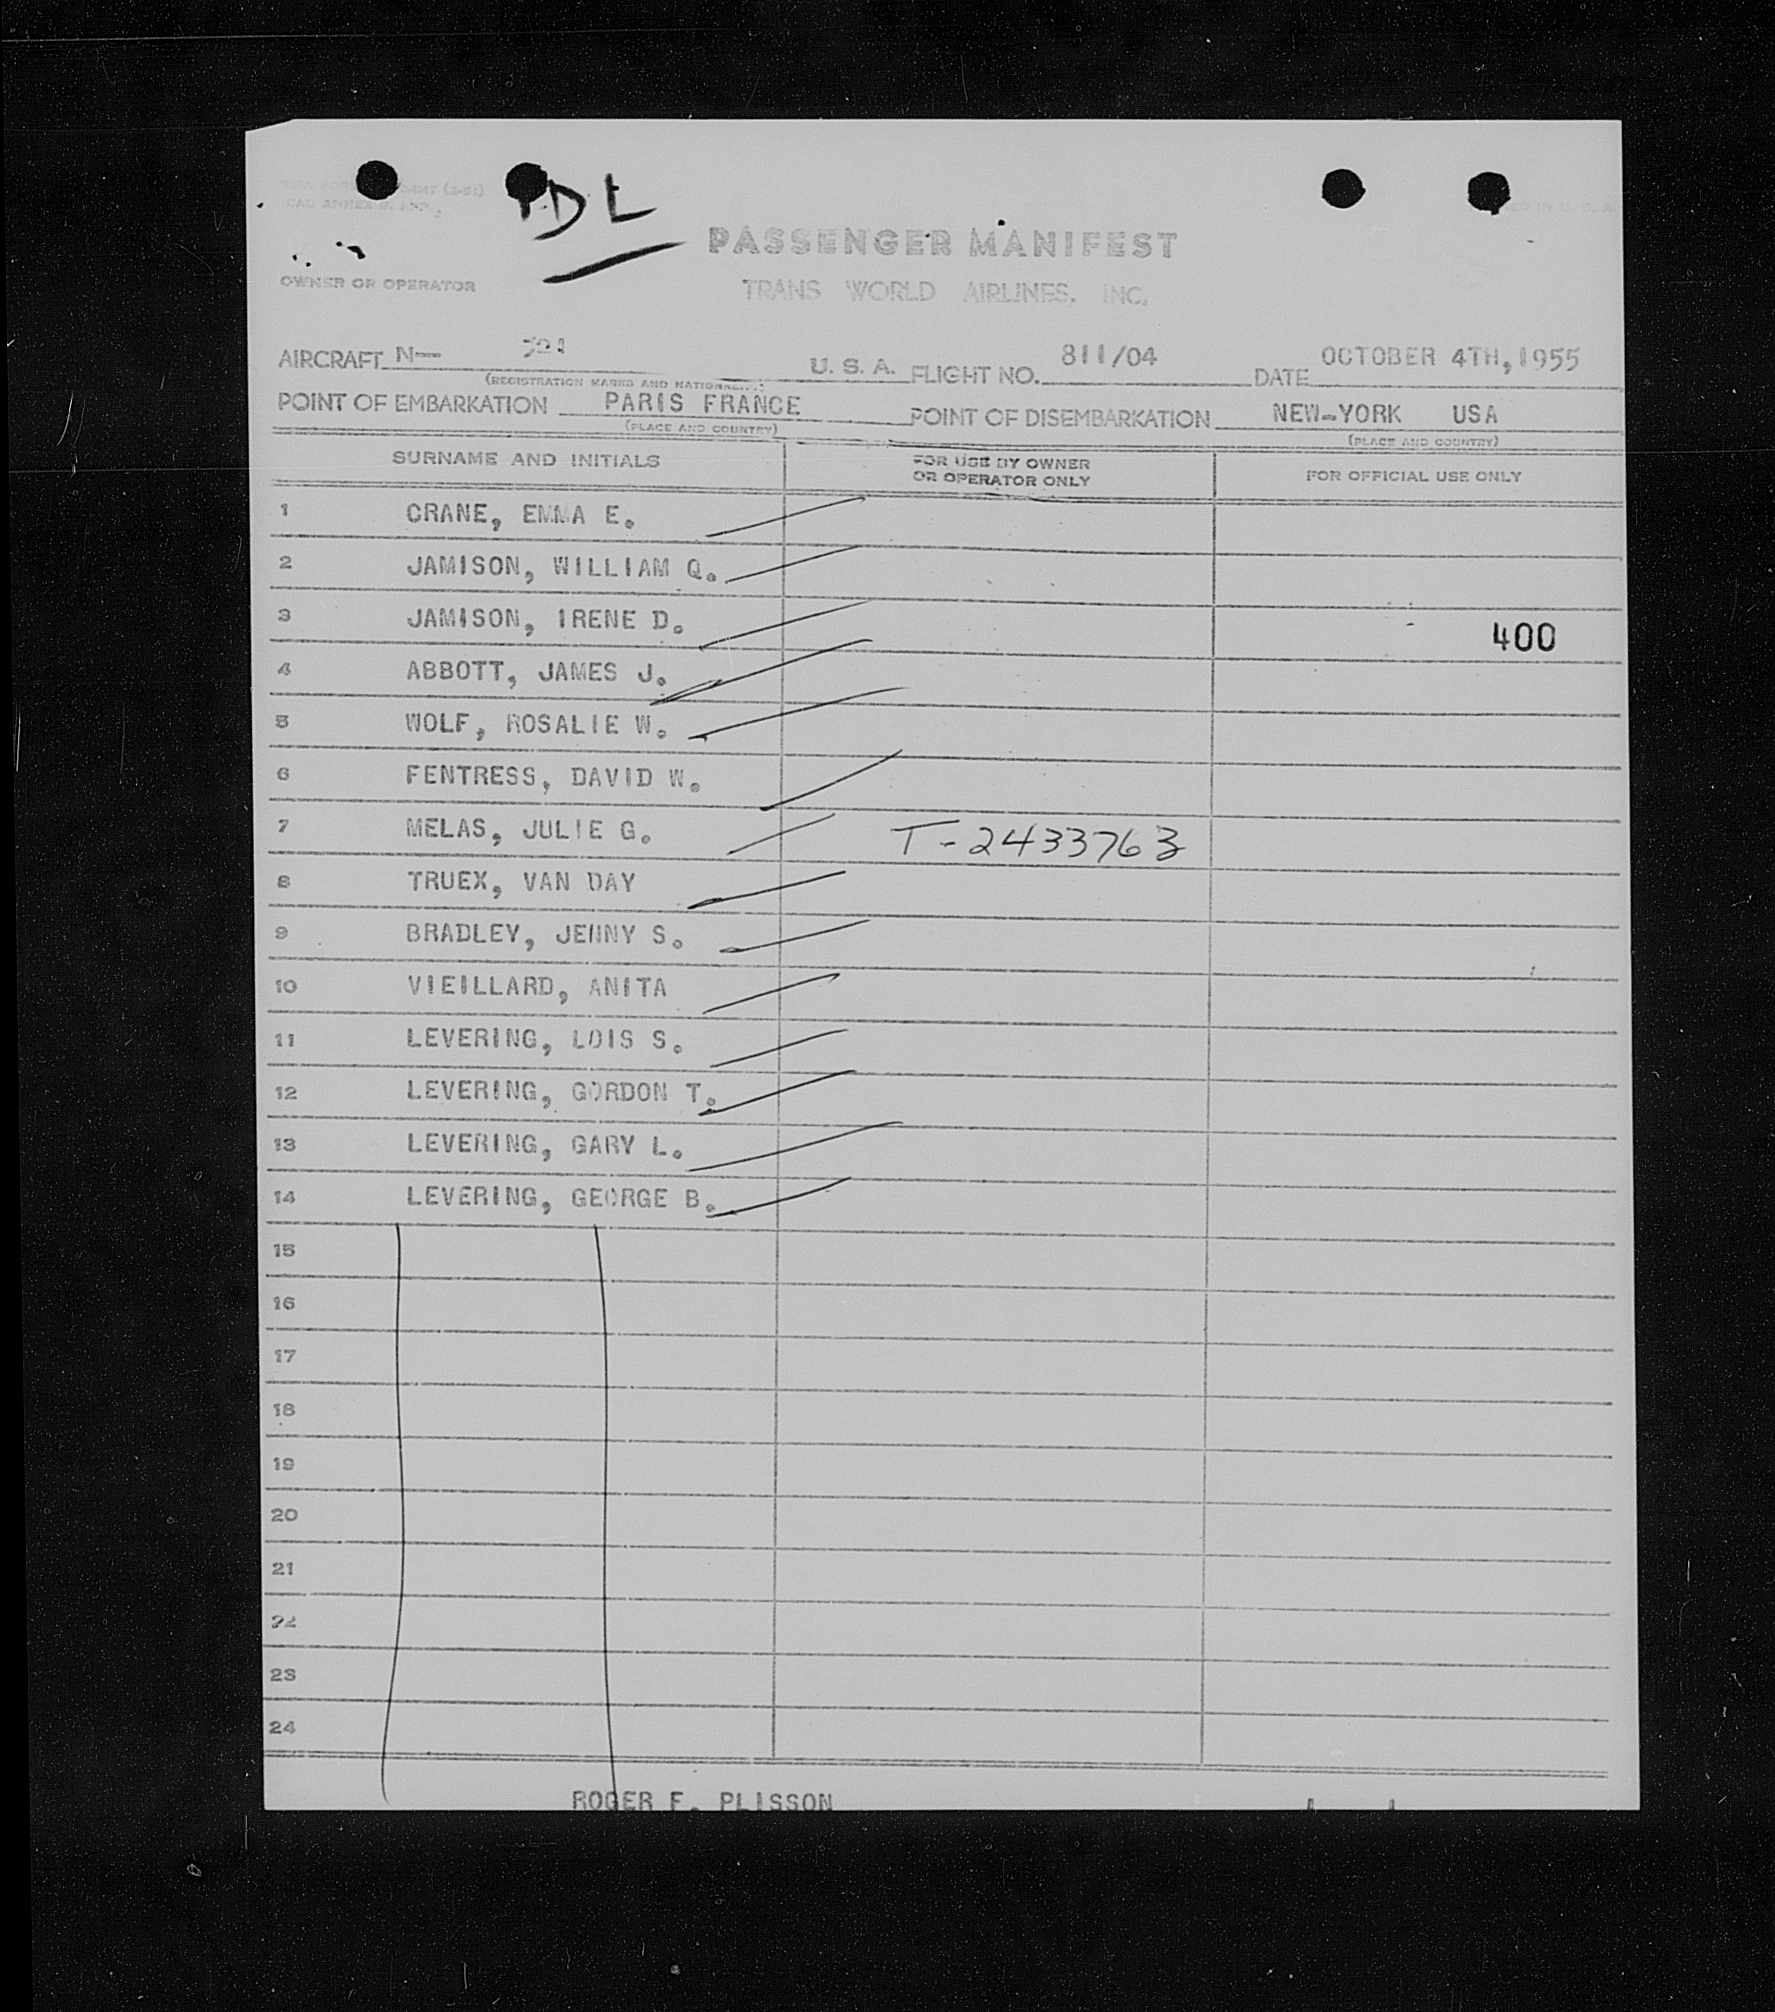 DL
PASSENGER MANIFEST
OWNER OR OPERATOR
TRANS WORLD AIRLINES, INC.
AIRCRAFT N— U. S. A. FLIGHT NO. 811/04 DATE OCTOBER 4TH, 1955
(REGISTRATION MARKS AND NATIONALITY)
POINT OF EMBARKATION PARIS FRANCE POINT OF DISEMBARKATION NEW-YORK USA
(PLACE AND COUNTRY) (PLACE AND COUNTRY)
SURNAME AND INITIALS FOR USE BY OWNER OR OPERATOR ONLY FOR OFFICIAL USE ONLY
1 CRANE, EMMA E.
2 JAMISON, WILLIAM Q.
3 JAMISON, IRENE D. 400
4 ABBOTT, JAMES J.
5 WOLF, ROSALIE W.
6 FENTRESS, DAVID W.
7 MELAS, JULIE G. T-2433763
8 TRUEX, VAN DAY
9 BRADLEY, JENNY S.
10 VIEILLARD, ANITA
11 LEVERING, LOIS S.
12 LEVERING, GORDON T.
13 LEVERING, GARY L.
14 LEVERING, GEORGE B.
15
16
17
18
19
20
21
22
23
24
ROGER F. PLISSON